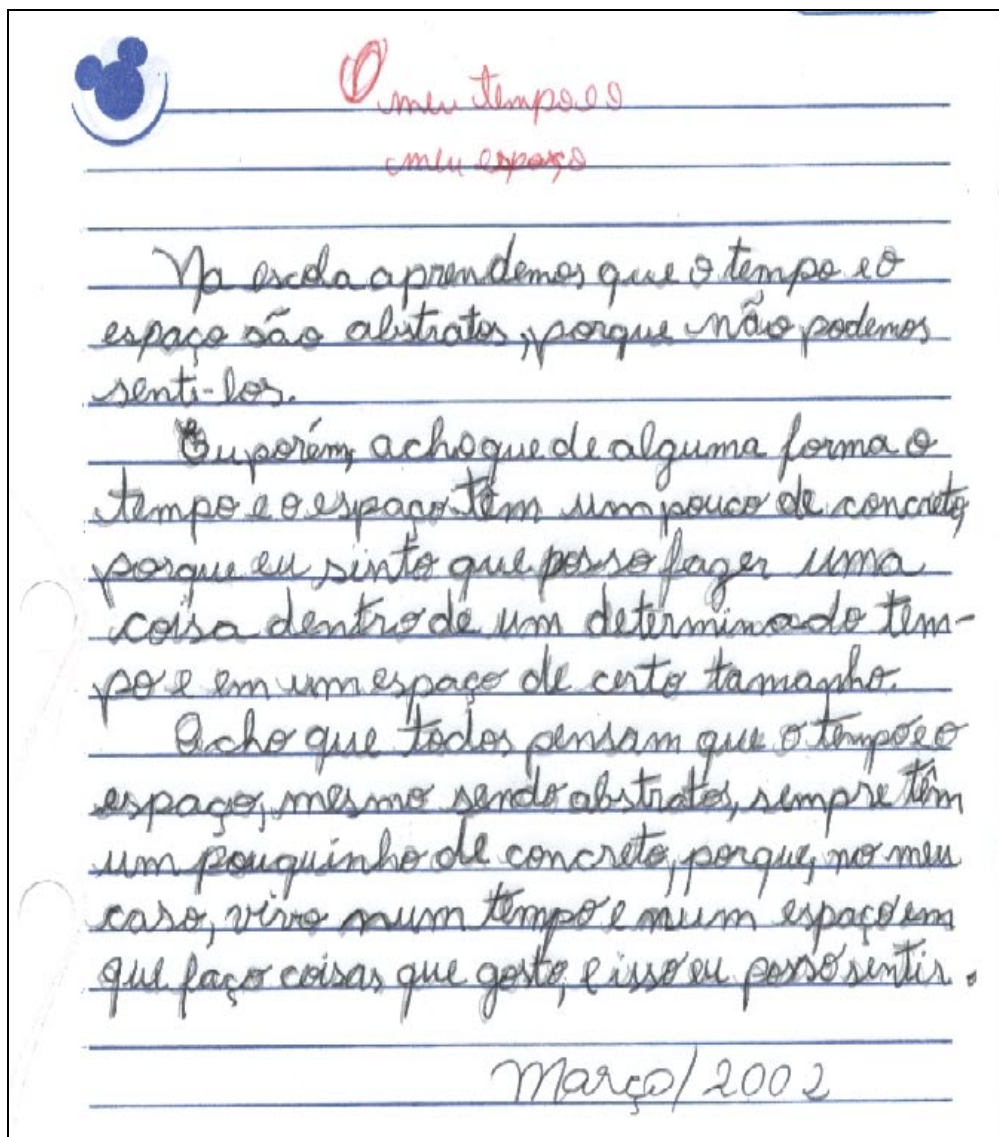 O meu tempo e o
meu espaço
Na escola aprendemos que o tempo e o
espaço são abstratos, porque não podemos
senti-los.
Eu porém, acho que de alguma forma o
tempo e o espaço têm um pouco de concreto,
porque eu sinto que posso fazer uma
coisa dentro de um determinado tem-
po e em um espaço de certo tamanho.
Acho que todos pensam que o tempo e o
espaço, mesmo sendo abstratos, sempre têm
um pouquinho de concreto, porque, no meu
caso, vivo num tempo e num espaço em
que faço coisas que gosto, e isso eu posso sentir.
Março/2002